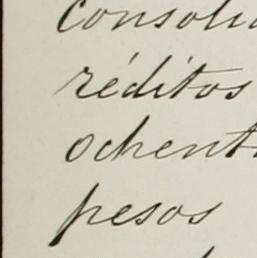 consolid
réditos
ochent
pesos